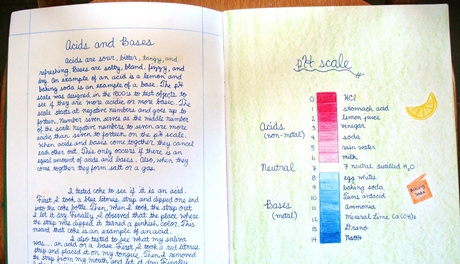 Acids and Bases
Acids are sour, bitter, tangy, and
refreshing. Bases are salty, bland, fizzy, and
dry. An example of an acid is a lemon and
baking soda is an example of a base. The pH
scale was designed in the 1000s to test objects to
see if they are more acidic or more basic. The
scale starts at negative numbers and goes up to
fortien. Number seven serves as the middle number
of the scale. Negative numbers to seven are more
acidic than seven to fortien on the pH scale.
When acids and bases come together they cancel
each other out. This only occurs if there is an
equal amount of acids and bases. Also, when they
come together they form salt or a gas.
I tested coke to see if it is an acid.
First I took a blue litmus strip and dipped one end
into the coke bottle. Then, when I took the strip out
I let it dry. Finally I observed that the place where
the strip was dipped it turned a pinkish color. This
meant that coke is an example of an acid.
I also tested to see what my saliva
was... an acid or a base. First, I took a red litmus
strip and placed it on my tongue. Then I removed
the strip from my mouth and let it dry. Finally
pH scale
0 HCl
1 stomach acid
2 lemon juice
3 vinegar
4 soda
5 rain water
6 milk
7 neutral distilled H2O
8 egg white
9 baking soda
10 Tums antacid
11 ammonia
12 Mineral Lime Ca(OH)2
13 Drano
14 NaOH
Acids
(non-metal)
Neutral
Bases
(metal)